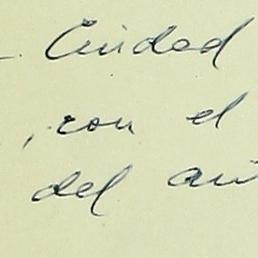 Ciudad
, con el
del